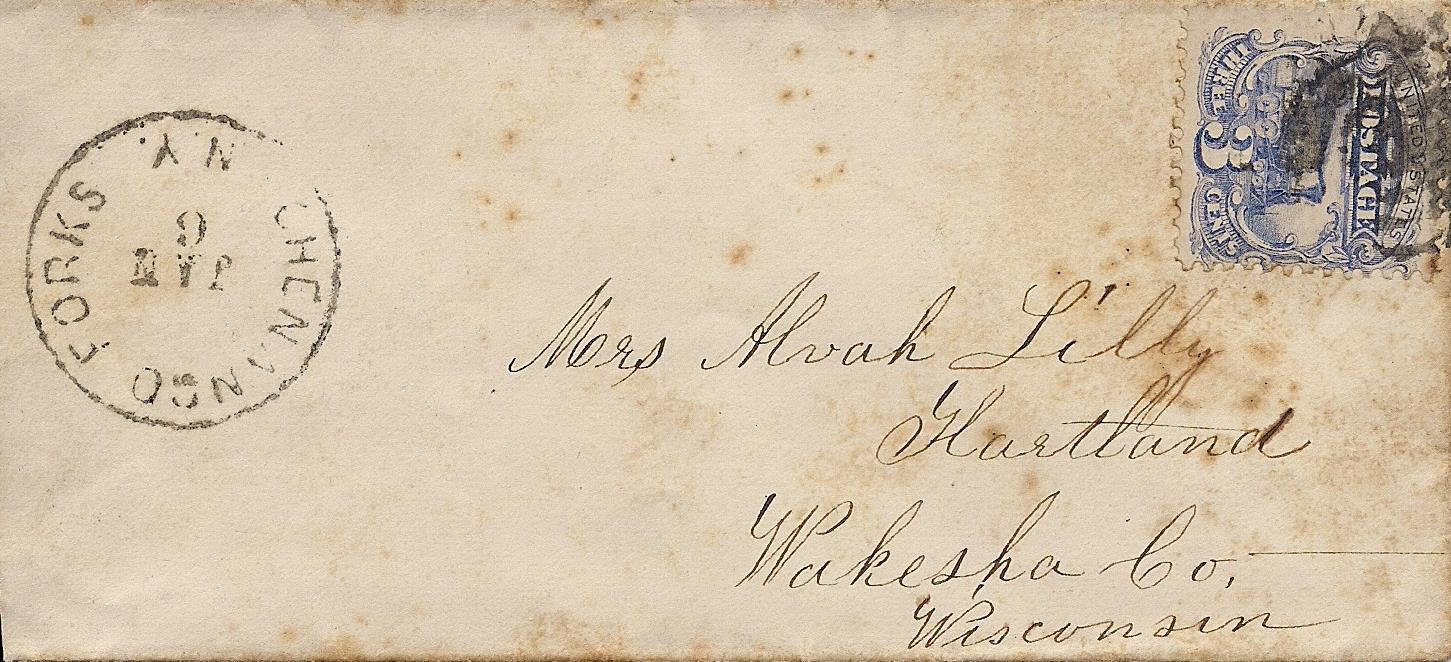 CHENANGO FORKS
N.Y.
JAN
6
UNITED STATES
POSTAGE
THREE 3 CENTS
Mrs Alvah Lilly
Hartland
Wakesha Co,
Wisconsin